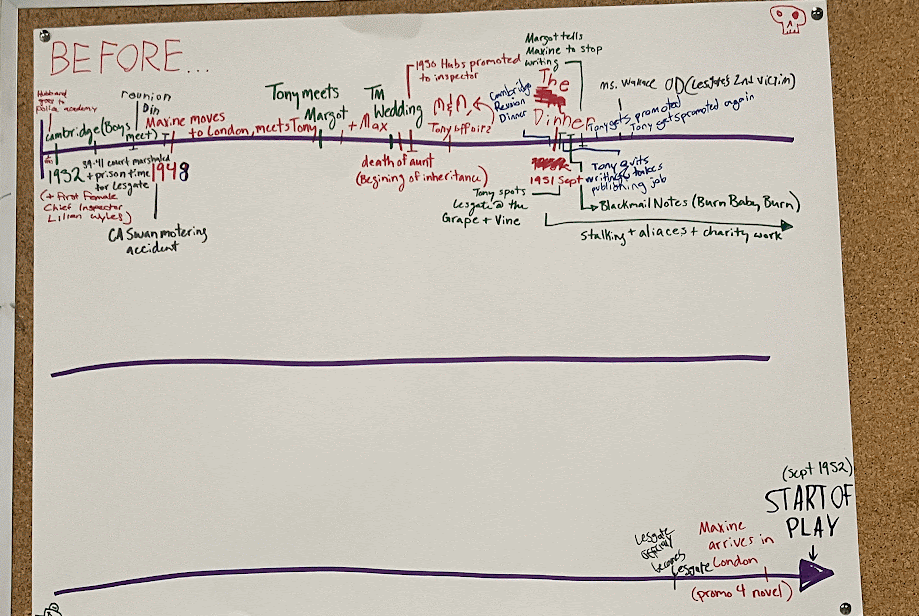 BEFORE...
Husband
goes to
Police academy
Cambridge (Boys meet)
reunion
Din
Maxine moves
to London, meets Tony
Tony meets
Margot
+ Max
TM
Wedding
1950 Hubs promoted
to inspector
M & M
Tony affair
Cambridge
Reunion
Dinner
Margot tells
Maxine to stop
writing
The
Dinner
Tony gets promoted
Tony gets promoted again
ms. Wallace OD (Lesgate's 2nd victim)
1932
(+ First Female
Chief Inspector
Lilian Wyles)
39-41 court marshaled
+ prison time
for Lesgate
1948
CA Swan motering
accident
death of aunt
(Begining of inheritance)
1951 Sept
Tony spots
Lesgate @ the
Grape + Vine
Tony quits
writing & takes
publishing job
Blackmail Notes (Burn Baby, Burn)
Stalking + aliaces + charity work
(Sept 1952)
START OF
PLAY
Lesgate
becomes
Lesgate
Maxine
arrives in
London
(promo 4 novel)